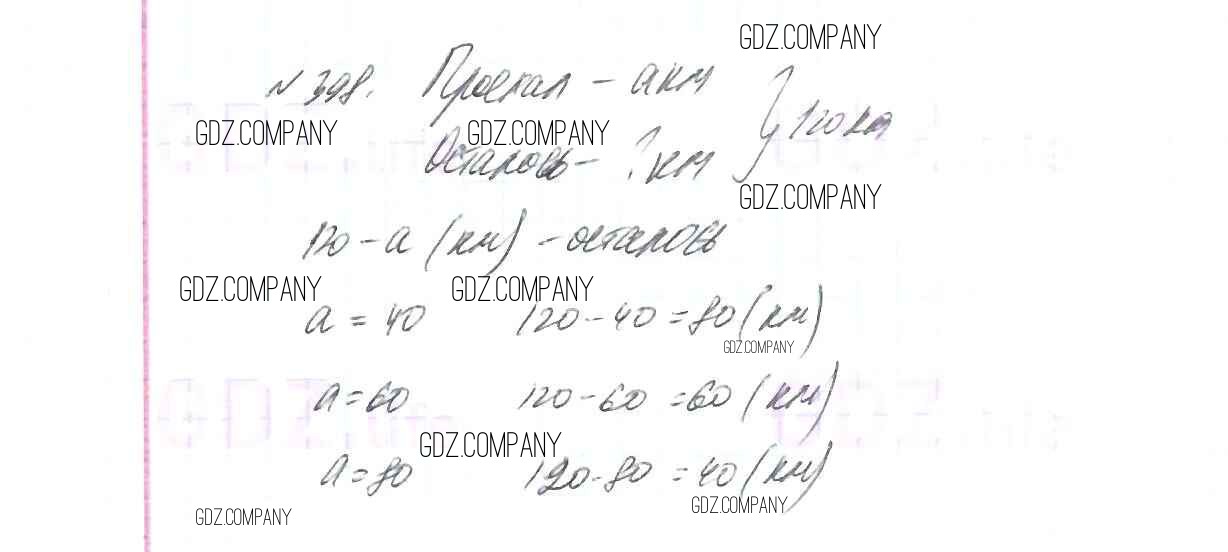 GDZ.COMPANY
№ 398. Проехал - а км
120 км
GDZ.COMPANY GDZ.COMPANY
Осталось - ? км
GDZ.COMPANY
120 - а (км) - осталось
GDZ.COMPANY GDZ.COMPANY
а = 40 120 - 40 = 80 (км)
GDZ.COMPANY
а = 60 120 - 60 = 60 (км)
GDZ.COMPANY
а = 80 120 - 80 = 40 (км)
GDZ.COMPANY
GDZ.COMPANY